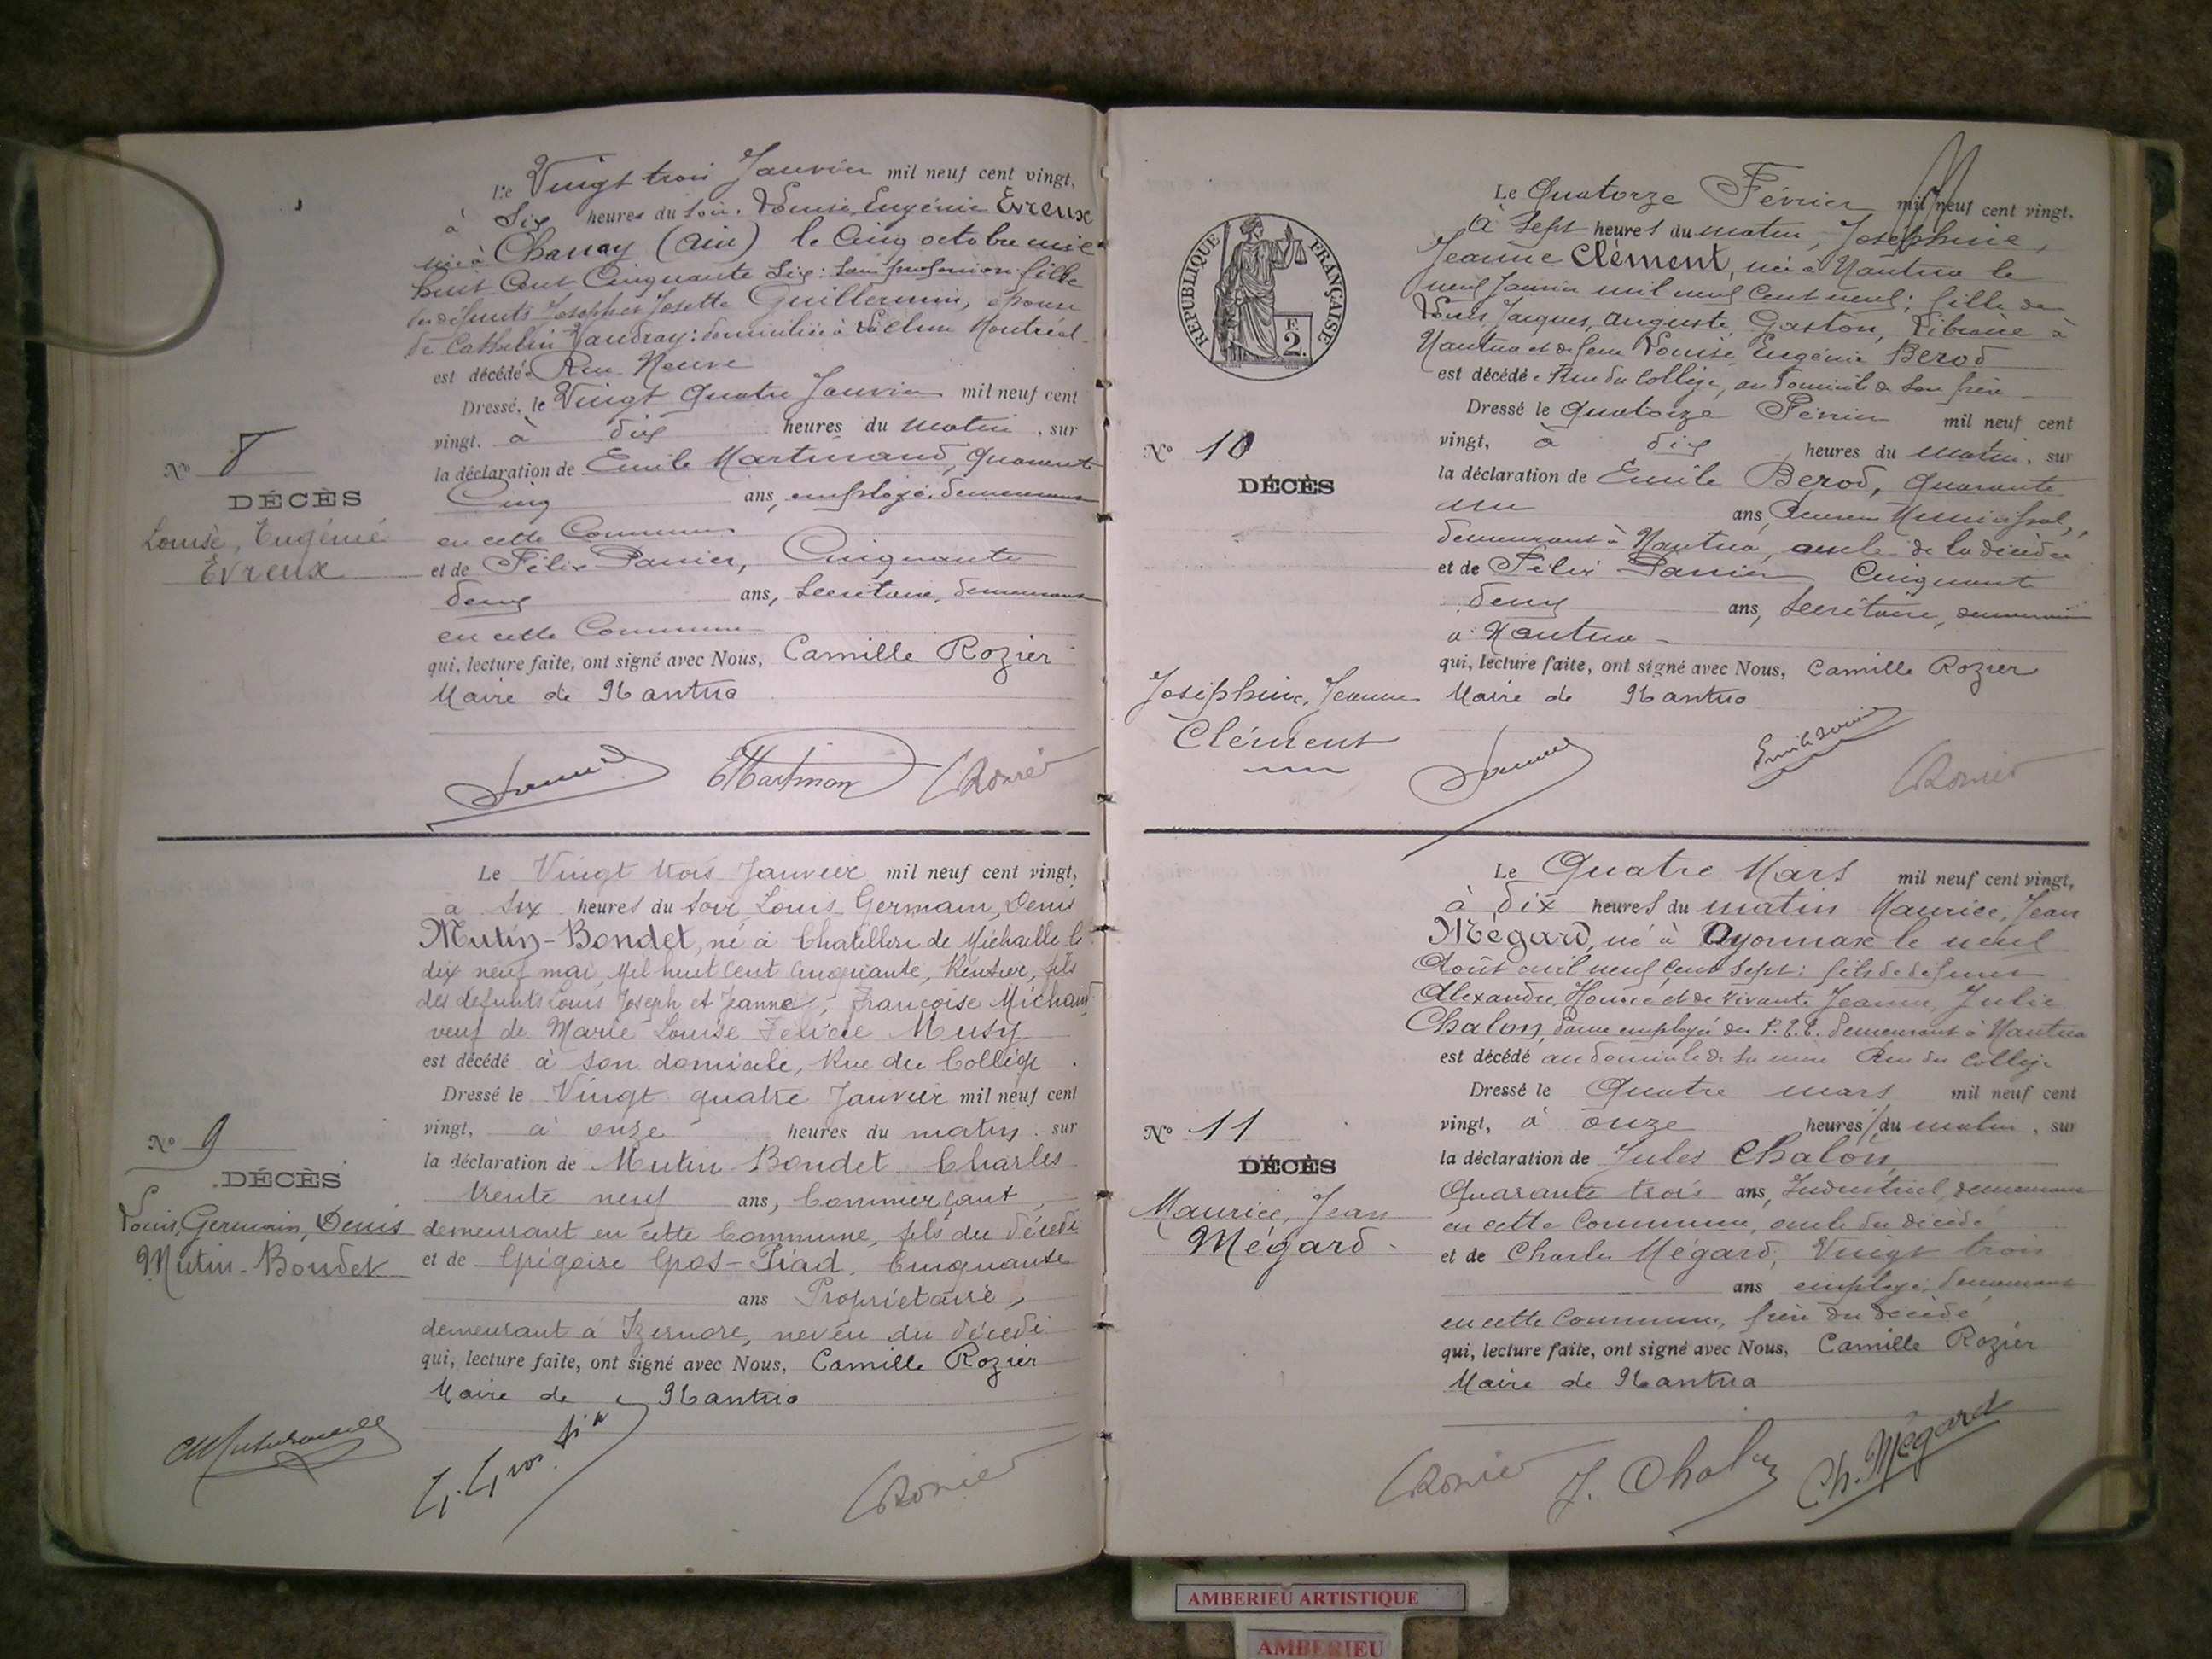 Le Vingt trois Janvier mil neuf cent vingt,
à Six heures du soir, Louise, Eugénie Evreux
née à Chanay (Ain) le Cinq octobre mil
huit Cent Cinquante Six: Sans profession fille
des défunts Joseph et Josette Guillermin, épouse
de Cathelin Vaudray: domiciliée à Montréal
est décédée Rue Neuve
Dressé, le Vingt Quatre Janvier mil neuf cent
vingt, à dix heures du matin, sur
la déclaration de Emile Martinand, Quarante
Cinq ans, employé, demeurant
en cette Commune
et de Félix Panier, Cinquante
deux ans, Secrétaire, demeurant
en cette Commune
qui, lecture faite, ont signé avec Nous, Camille Rozier
Maire de Nantua
N° 8
DÉCÈS
Louise, Eugénie
Evreux
EMartinand
CRozier
Le Vingt trois Janvier mil neuf cent vingt,
à six heures du soir, Louis, Germain, Denis
Mutin-Bondet, né à Chatillon de Michaille le
dix neuf mai, Mil huit Cent Cinquante, Rentier, fils
des défunts Louis Joseph et Jeanne, Françoise Michaud
veuf de Marie Louise Musy
est décédé à son domicile, Rue du Collège.
Dressé le Vingt quatre Janvier mil neuf cent
vingt, à onze heures du matin, sur
la déclaration de Mutin-Bondet Charles
trente neuf ans, Commerçant,
demeurant en cette Commune, fils du décédé
et de Grégoire Gros-Piad, Cinquante
ans Propriétaire,
demeurant à Izernore, neveu du décédé
qui, lecture faite, ont signé avec Nous, Camille Rozier
Maire de Nantua
N° 9
DÉCÈS
Louis, Germain, Denis
Mutin-Bondet
CRozier
RÉPUBLIQUE FRANÇAISE
F.
2.
Le Quatorze Février mil neuf cent vingt,
à Sept heures du matin, Joséphine,
Jeanne Clément, née à Nantua le
neuf Janvier mil neuf Cent neuf; fille de
Louis, Jacques, Auguste, Gaston, Libraire à
Nantua et de feue Louise Eugénie Berod
est décédée Rue du Collège, au domicile de son père
Dressé le Quatorze Février mil neuf cent
vingt, à dix heures du matin, sur
la déclaration de Emile Berod, Quarante
un ans, Receveur Municipal,
demeurant à Nantua, oncle de la décédée
et de Félix Panier Cinquante
deux ans, Secrétaire, demeurant
à Nantua
qui, lecture faite, ont signé avec Nous, Camille Rozier
Maire de Nantua
N° 10
DÉCÈS
Joséphine, Jeanne
Clément
CRozier
Le Quatre Mars mil neuf cent vingt,
à dix heures du matin Maurice, Jean
Mégard, né à Oyonnax le neuf
Août mil neuf cent sept: fils de défunt
Alexandre, Honoré et de vivante Jeanne, Julie
Chalon, Dame employée des P.T.T. demeurant à Nantua
est décédé au domicile de sa mère Rue du Collège
Dressé le Quatre mars mil neuf cent
vingt, à onze heures du matin, sur
la déclaration de Jules Chalon
Quarante trois ans, Industriel, demeurant
en cette Commune, oncle du décédé
et de Charles Mégard, Vingt trois
ans employé, demeurant
en cette Commune, frère du décédé
qui, lecture faite, ont signé avec Nous, Camille Rozier
Maire de Nantua
N° 11
DÉCÈS
Maurice, Jean
Mégard
CRozier
J. Chalon
Ch. Mégard
AMBERIEU ARTISTIQUE
AMBERIEU